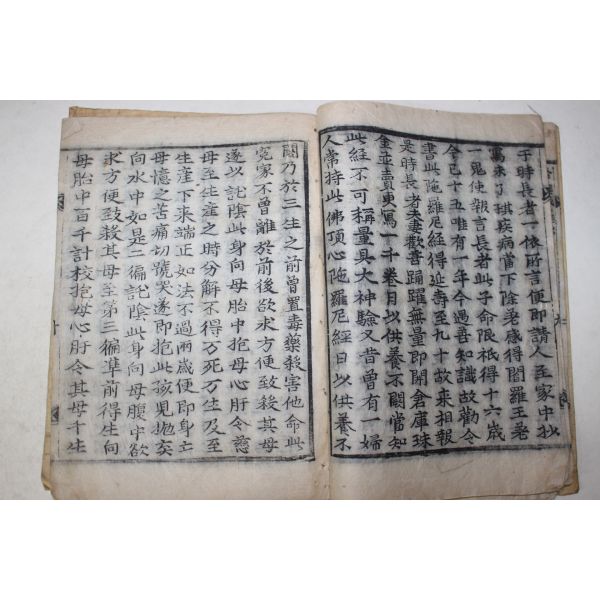 于時長者一依所言便即請人至家中抄
寫未了其疾病當下除差感得閻羅王差
一鬼使報言長者此子命限祇得十六歲
今已十五唯有一年今遇善知識故勸令
書此陁羅尼經得延壽至九十故來相報
是時長者夫妻歡喜踊躍無量即開倉庫珠
金並賣更寫一千卷日以供養不闕當知
此經不可稱量具大神驗又昔曾有一婦
人常持此佛頂心陁羅尼經日以供養不
闕乃於三生之前曾置毒藥殺害他命此
寃家不曾離於前後欲求方便致殺其母
遂以託陰此身向母胎中抱母心肝令慈
母至生產之時分解不得万死万生及至
生產下來端正如法不過兩歲便即身亡
母憶之苦痛切號哭遂即抱此孩兒抛棄
向水中如是二徧託陰此身向母腹中欲
求方便致殺其母至第三徧準前得生向
母胎中百千計校抱母心肝令其母千生